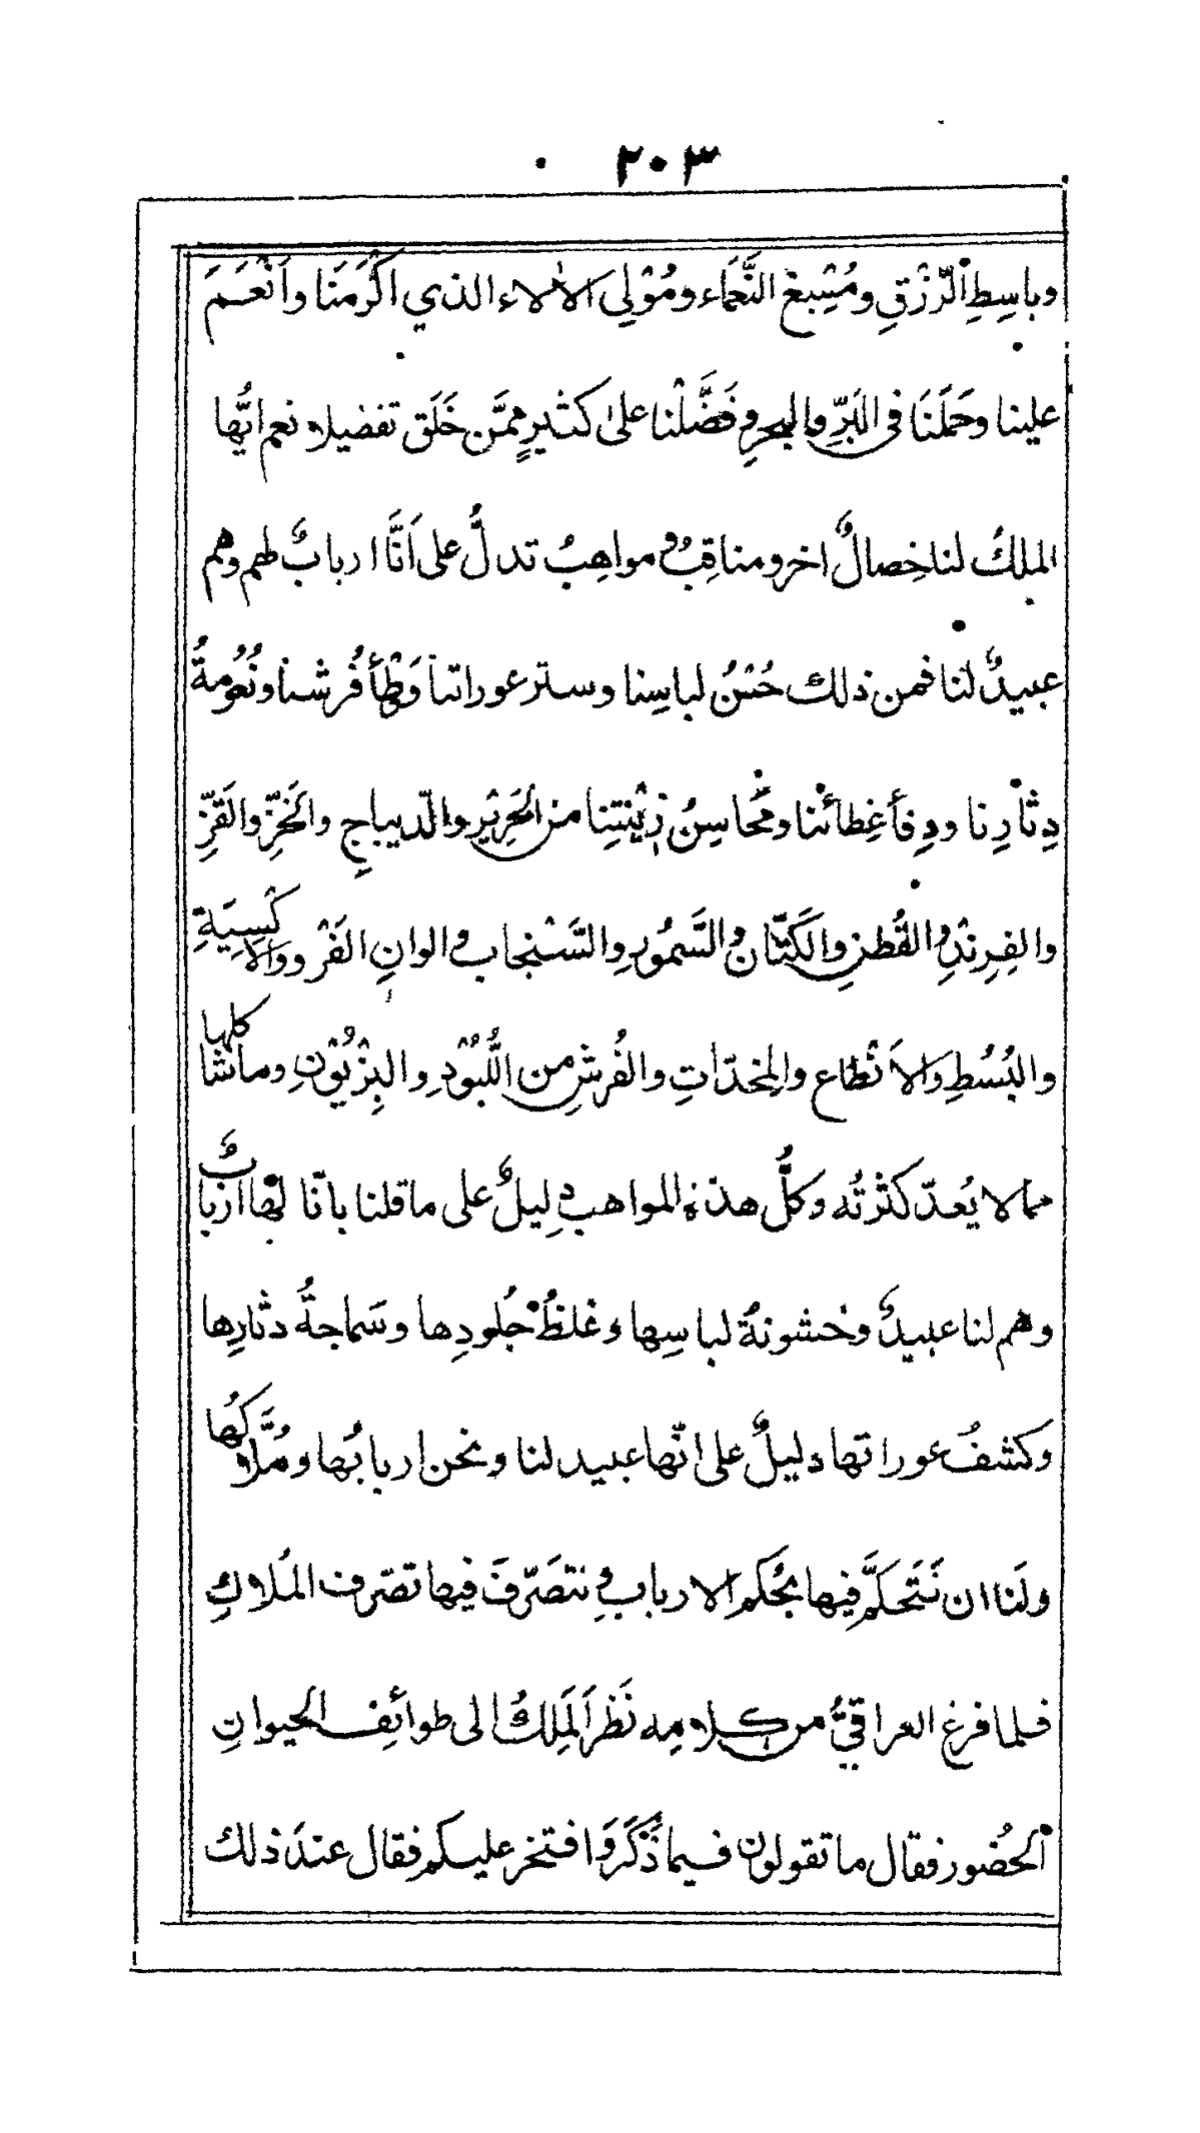 ٢٠٣
وباسِطِ الرِّزْقِ ومُسْبِغِ النَّعْمَاء ومُوْلِي الآلاء الذي اكْرَمَنَا واَنْعَمَ
علينا وحَمَلَنَا في البَرِّ والبحرِ وفَضَّلْنا على كثيرٍ ممَّن خَلَق تفضيلا نعم ايّها
الملكُ لنا خِصالٌ اخر ومناقِبُ ومواهِبُ تدلُّ على اَنَّا اربابٌ لهم وهم
عبيدٌ لنا فمن ذلك حُسْنُ لباسِنا وستر عوراتنا وَطْأُ فُرشنا ونُعُومةُ
دِثَارِنا ودِفأُ غِطائنا ومَحَاسِنُ زِيْنتِنا من الحَرِيْرِ والدّيباجِ والخَزِّ والقَزِّ
والفِرِنْدِ والقُطنِ والكَتّانِ والسَّمُورِ والسَّنْجاب والوانِ الفَرْو والاكْسِيَةِ
والبُسُطِ والاَنْطاع والمخدّاتِ والفُرشِ من اللُّبُوْدِ والبِزْيُوْنِ وما شاكلها
مما لا يُعدّ كثرتُه وكلُّ هذه المواهب دِليلٌ على ما قلنا بانّا لها اربابٌ
وهم لنا عبيدٌ وخشونةُ لباسِها وغلظُ جُلودِها وسَماجةُ دثارِها
وكشفُ عوراتها دليلٌ على انّها عبيد لنا ونحن اربابُها ومُلَّاكُها
ولَنا ان نَتَحكَّم فِيها بحُكم الارباب ونتصَرّفَ فيها تصّرف المُلاكِ
فلما فرغ العراقيُّ من كلامِه نَظَر المَلِكُ الى طوائفِ الحيوانِ
الحُضُور فقال ما تقولون فيما ذَكَرَ وافتخر عليكم فقال عندَ ذلك